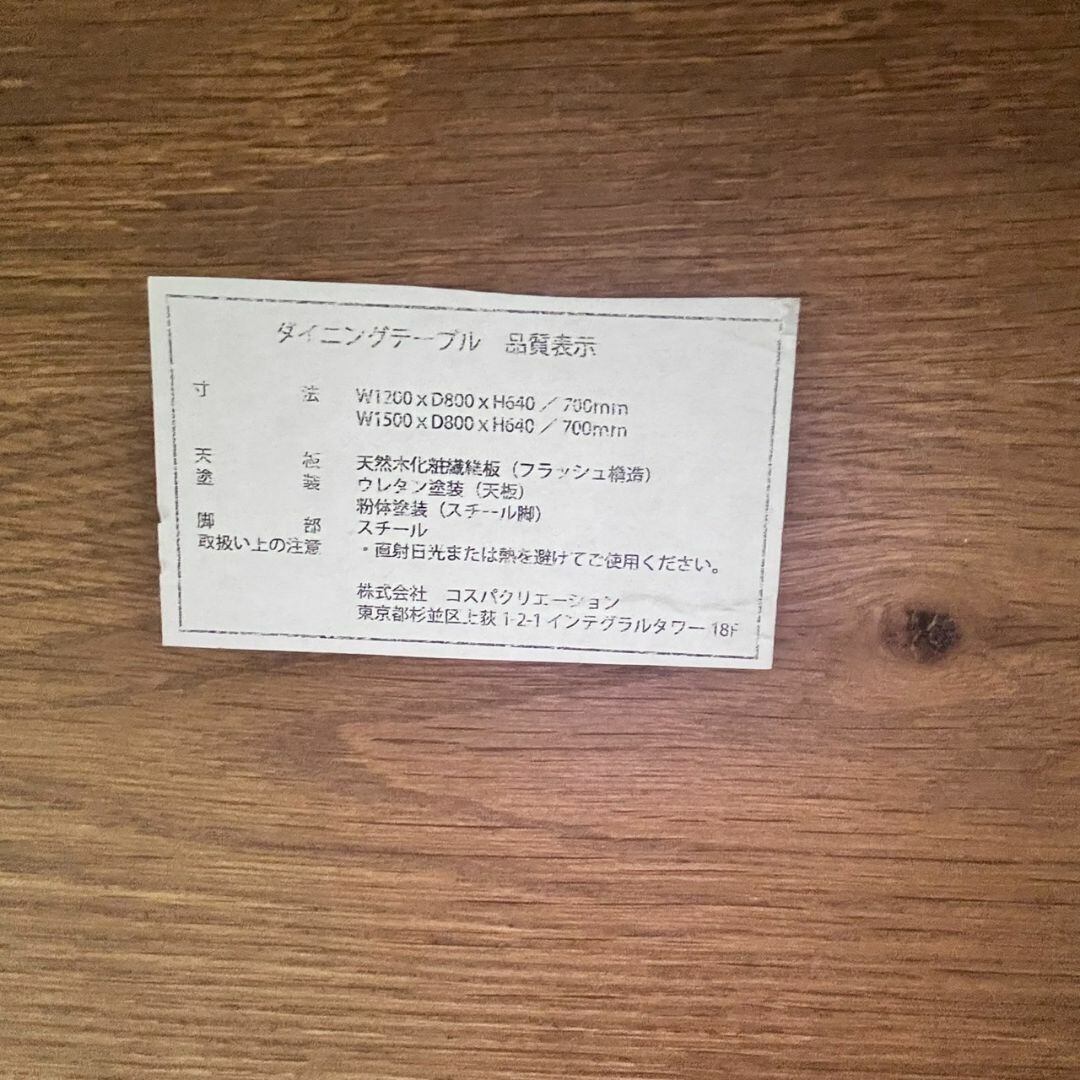 ダイニングテーブル 品質表示
寸法 W1200 x D800 x H640 / 700mm
W1500 x D800 x H640 / 700mm
天板 天然木化粧繊維板（フラッシュ構造）
塗装 ウレタン塗装（天板）
粉体塗装（スチール脚）
脚部 スチール
取扱い上の注意 ・直射日光または熱を避けてご使用ください。
株式会社 コスパクリエーション
東京都杉並区上荻 1-2-1 インテグラルタワー 18F